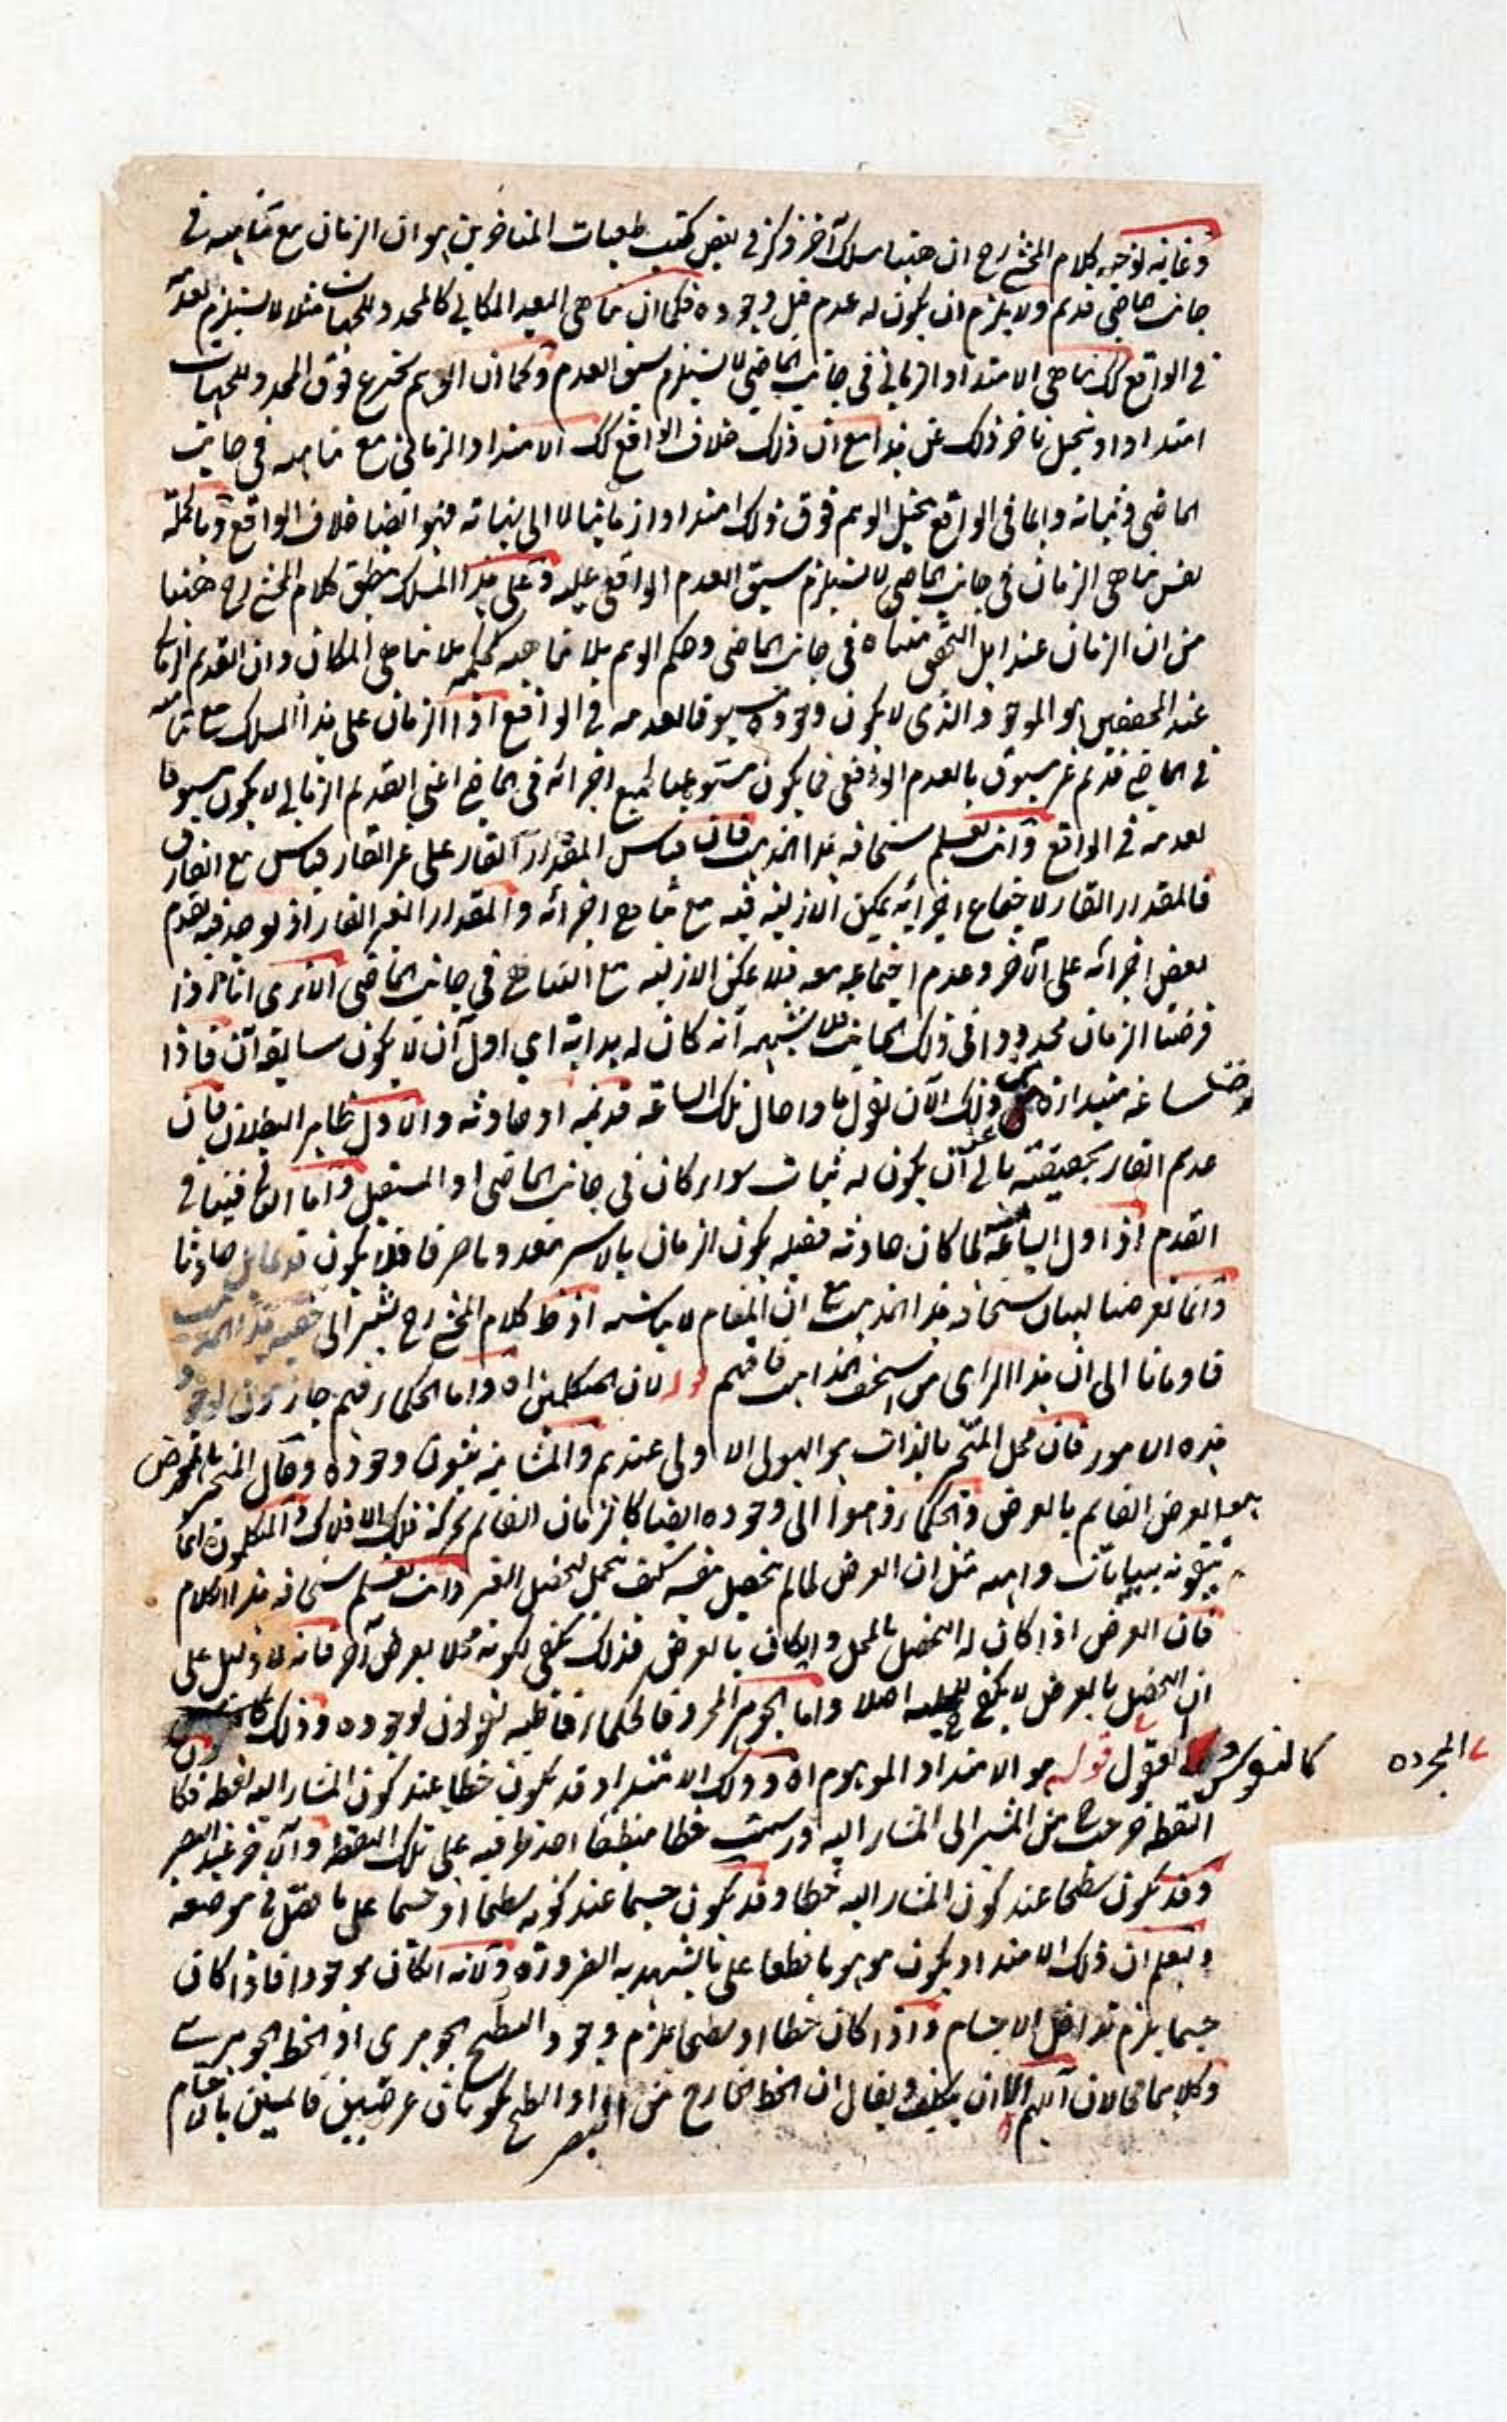 وغاية توجيه كلام المحشي رح ان ههنا مسلك آخر ذكر في بعض كتب طبعيات المتاخرين هو ان الزمان مع تناهيه في
جانب ماضي قديم ولا يلزم ان يكون له عدم قبل وجوده فكما ان تناهي البعد المكاني كالمحدد للجهات مثلا لا يستلزم بعد
في الواقع كك تناهي الامتداد الزماني في جانب الماضي لا يستلزم سبق العدم وكما ان الوهم يخترع فوق المحدد للجهات
امتدادا ويتخيل تاخر ذلك عن هذا مع ان ذلك خلاف الواقع كك الامتداد الزماني مع تناهيه في جانب
الماضي وثباته دائما في الواقع يتخيل الوهم فوق ذلك امتدادا زمانيا لا الى نهاية فهو ايضا خلاف الواقع وبالجملة
نفس تناهي الزمان في جانب الماضي لا يستلزم سبق العدم الواقعي عليه وعلى هذا المسلك ينطبق كلام المحشي رح ههنا
من ان الزمان عند اهل التحقيق متناه في جانب الماضي وحكم الوهم بلا تناهيه كحكمه بلا تناهي المكان وان القديم الزماني
عند المحققين هو الموجود الذي لا يكون وجوده مسبوقا بعدمه في الواقع اذ الزمان على هذا المسلك مع تناهيه
في الماضي قديم غير مسبوق بالعدم الواقعي فما يكون مستوعبا لجميع اجزائه في الماضي اعني القديم الزماني لا يكون مسبوقا
بعدمه في الواقع وانت تعلم سخافة هذا المذهب فان قياس المقدار القار على غير القار قياس مع الفارق
فالمقدار القار لاجتماع اجزائه يمكن الازلية فيه مع تناهي اجزائه والمقدار الغير القار اذ يوجد فيه تقدم
بعض اجزائه على الآخر وعدم اجتماعه معه فلا يمكن الازلية مع التناهي في جانب الماضي الا ترى انا اذا
فرضنا الزمان محدودا في ذلك الجانب فلا شبهة انه كان له بداية اي اول آن لا يكون سابقه آن فاذا
فرضنا ساعة مبتداة من ذلك الآن نقول ما حال تلك الساعة قديمة او حادثة والاول ظاهر البطلان فان
عدم القار بحقيقته يابى عن ان يكون له ثبات سواء كان في جانب الماضي او المستقبل واما الثاني فينافي
القدم اذ اول الساعة لما كان حادثة فقبله يكون الزمان بالاسر معدوما صرفا فلا يكون قديما بل حادثا
وانما تعرضنا لبيان سخافة هذا المذهب مع ان المقام لا يناسبه اذ ظ كلام المحشي رح يشير الى حقية هذا المذهب
فاومانا الى ان هذا الراي من اسخف المذاهب فافهم قوله لان المتكلمين اه واما الحكماء فهم جازمون لوجود
هذه الامور فان محل المتحيز بالذات هو الهيولى الاولى عندهم والمشائية يثبتون وجوده وحال المتحيز بالعرض
هو العرض القايم بالعرض والحكماء ذهبوا الى وجوده ايضا كالزمان القايم بحركة فلك الافلاك والمتكلمون انما
ينفونه ببيانات واهية مثل ان العرض لما لم يتحصل بنفسه كيف يحمل لتحصل الغير وانت تعلم سخافة هذا الكلام
فان العرض اذا كان له التحصل بالمحل وان كان بالعرض فذلك يكفي لكونه محلا لعرض آخر فانه لا دليل على
ان التحصل بالعرض لا يكفي للمحلية اصلا واما الجوهر المجرد فالحكماء قاطبة يقولون لوجوده وذلك
كالنفوس والعقول قوله هو الامتداد الموهوم اه وذلك الامتداد قد يكون خطا عند كون المشار اليه نقطة فكان
المجرده
النقطة خرجت من المشير الى المشار اليه ورسمت خطا منطبقا احد طرفيه على تلك النقطة والآخر عند البصر
وقد يكون سطحا عند كون المشار اليه خطا وقد يكون جسما عند كونه سطحا او جسما على ما فصل في موضعه
وليعلم ان ذلك الامتداد يكون موهوما قطعا على ما يشهد به الضرورة ولانه ان كان موجودا فاذا كان
جسما يلزم تداخل الاجسام واذا كان خطا او سطحا يلزم وجود السطح الجوهري او الخط الجوهري
وكلاهما محالان اللهم الا ان يتكلف ويقال ان الخط الخارج من البصر او السطح يكونان عرضيين قائمين بالاجسام